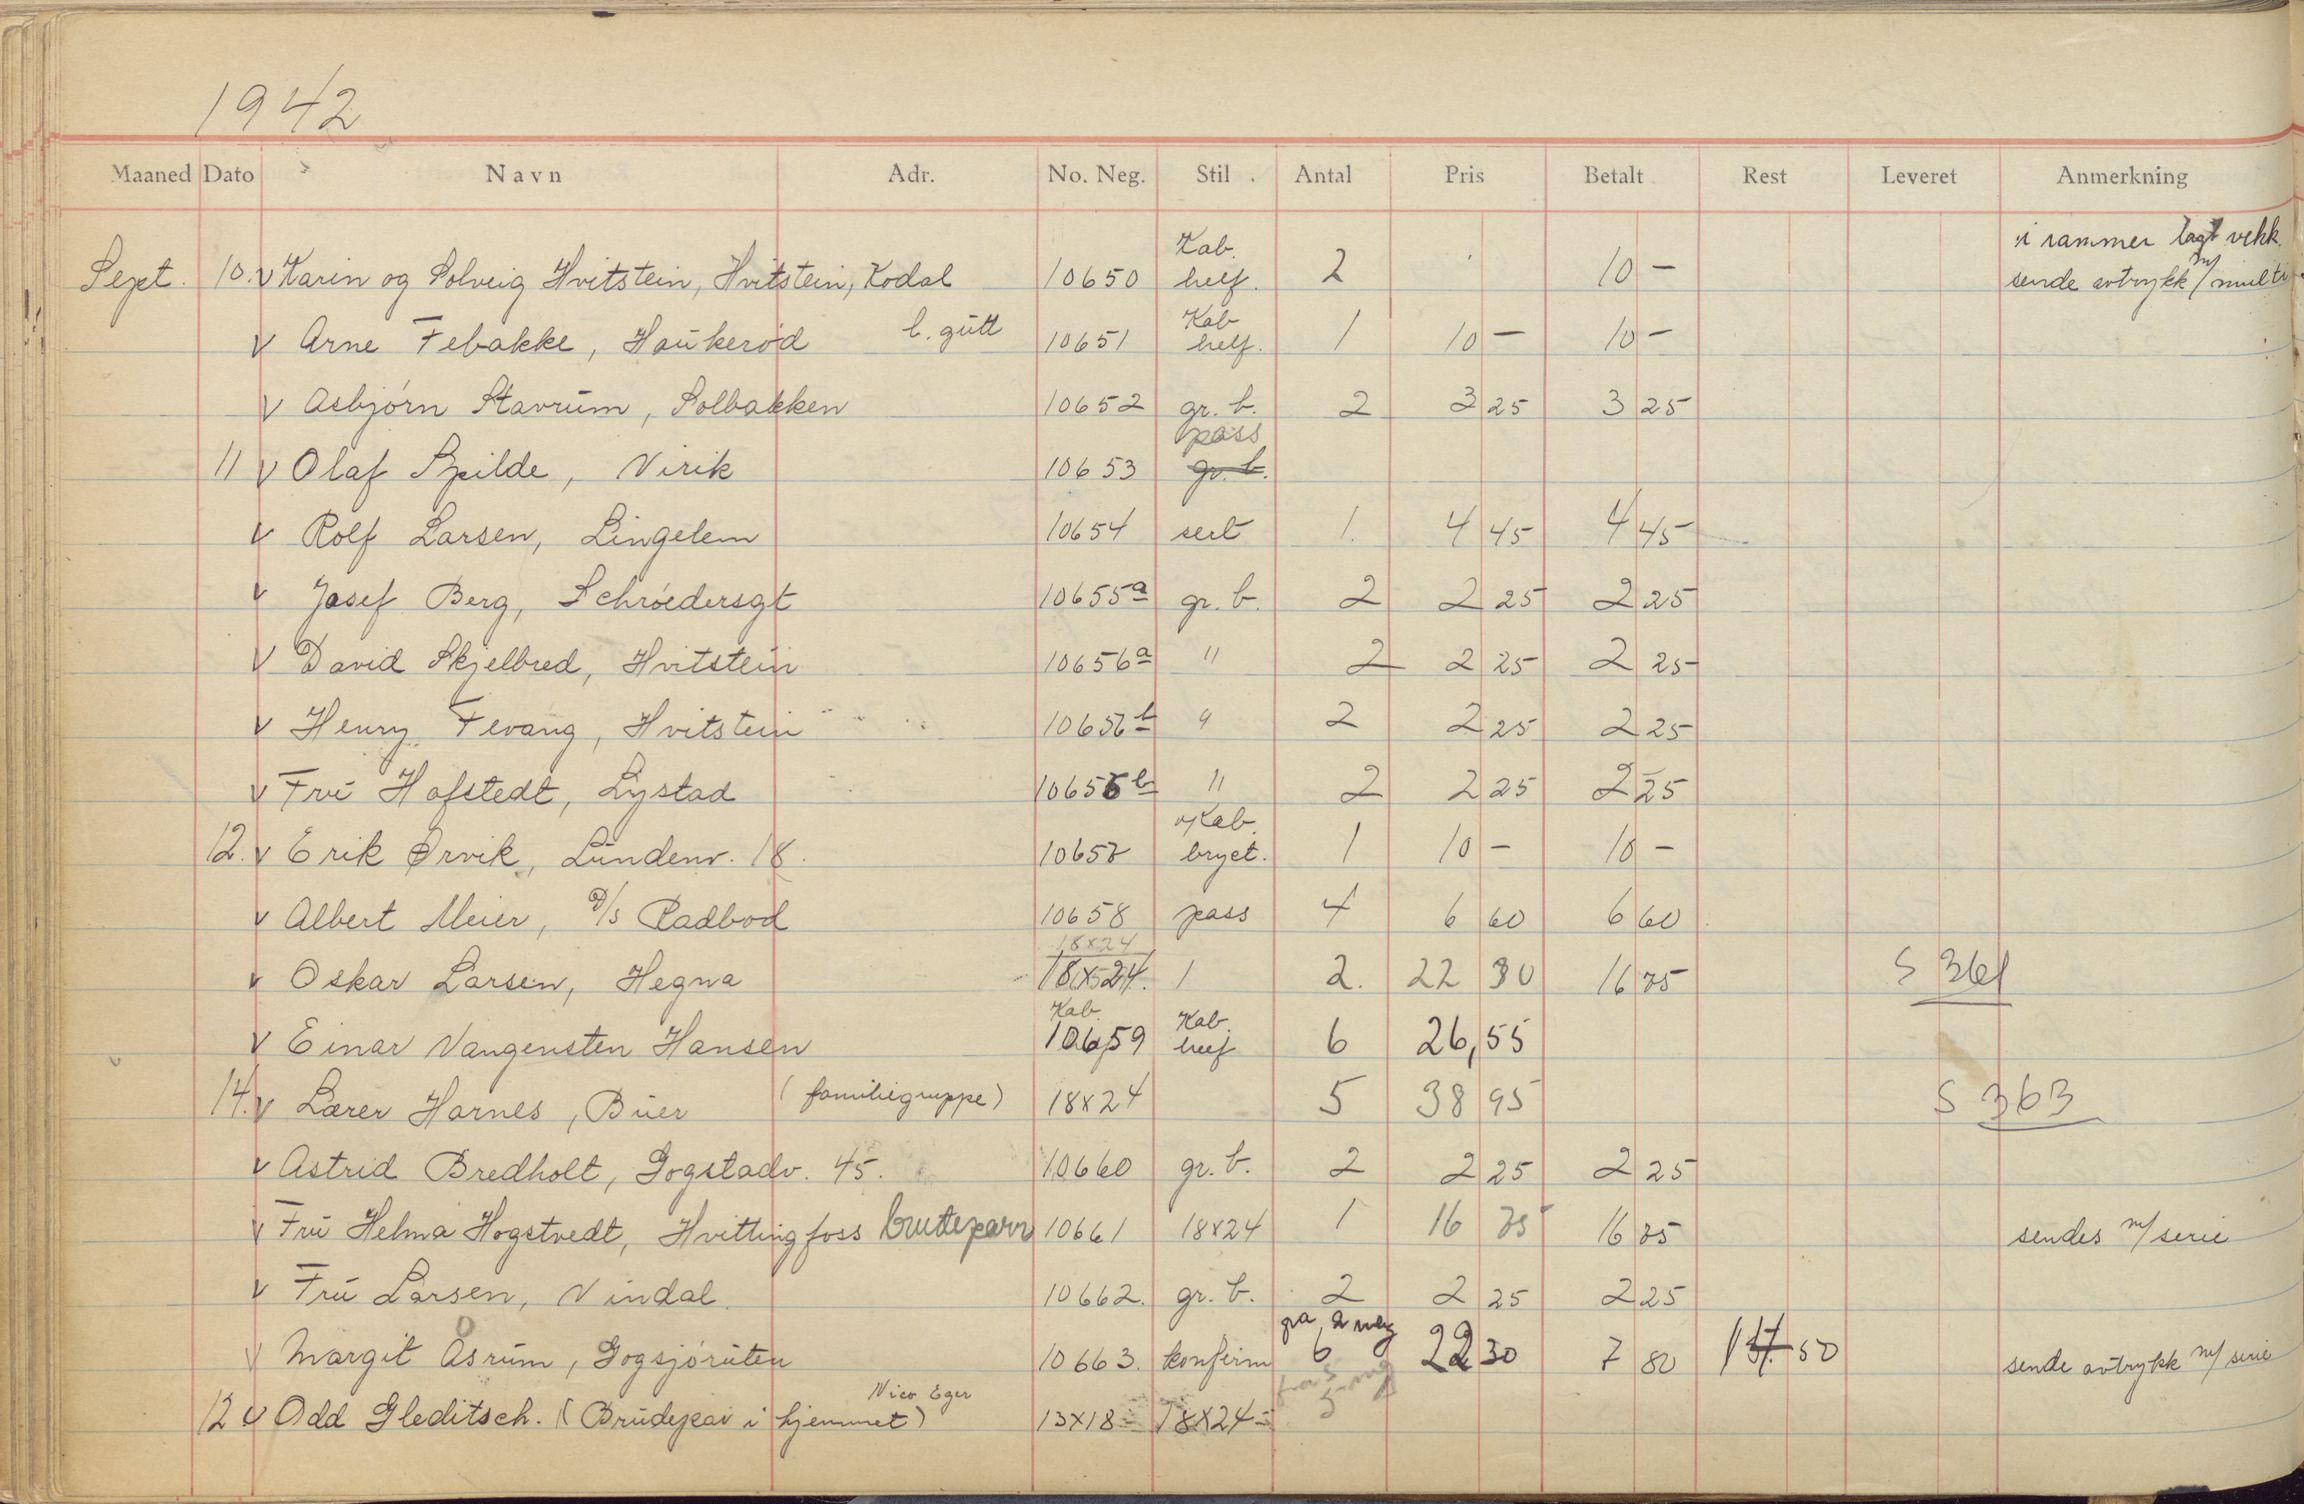 1942
Maaned Dato Navn Adr. No. Neg. Stil Antal Pris Betalt Rest Leveret Anmerkning
i rammer lagt vekk.
Sept. 10. v Karin og Solveig Hvitstein, Hvitstein, Kodal 10650 Kab. helf. 2 10 - sende avtrykk m/ multi
v Arne Febakke, Haukerød l. gutt 10651 Kab helf. 1 10 - 10 -
v Asbjørn Stavrum, Solbakken 10652 gr. b. 2 3 25 3 25
11 v Olaf Spilde, Virik 10653 pass gr. b.
v Rolf Larsen, Lingelem 10654 sert 1. 4 45 4 45
v Josef Berg, Schrøedersgt 10655a gr. b. 2 2 25 2 25
v David Skjelbred, Hvitstein 10656a " 2 2 25 2 25
v Henry Fevang, Hvitstein 10656b " 2 2 25 2 25
v Fru Hafstedt, Lystad 10655b " 2 2 25 2 25
12. v Erik Ørvik, Lundenv. 18. 10657 Kab. bryst. 1 10 - 10 -
v Albert Meier, D/S Radbod 10658 pass 4 6 60 6 60
18x24
v Oskar Larsen, Hegna 18x24. 1 2. 22 30 16 75 S 361
v Einar Vangensten Hansen Kab. 10659 Kab. helf 6 26,55
14. v Lærer Harnes, Buer (familiegruppe) 18x24 5 38 95 S 363
v Astrid Bredholt, Gogstadv. 45. 10660 gr. b. 2 2 25 2 25
v Fru Helma Hogstvedt, Hvittingfoss brudeparr 10661 18x24 1 16 75 16 75 sendes m/ serie
v Fru Larsen, Vindal. 10662. gr. b. 2 2 25 2 25
v Margit Åsrum, Gogsjøruten 10663. konfirm på 2 neg 6 22 30 7 80 50 sende avtrykk m/ serie
12 v Odd Gleditsch. (Brudepar i hjemmet) Nico Eger 13x18 - 18x24 -